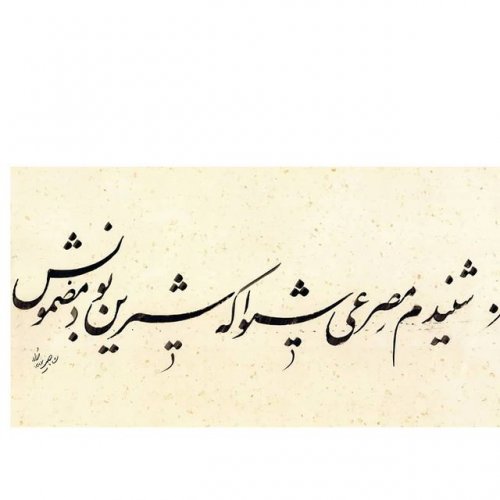 شنیدم مصرعی شیوا که شیرین بود مضمونش